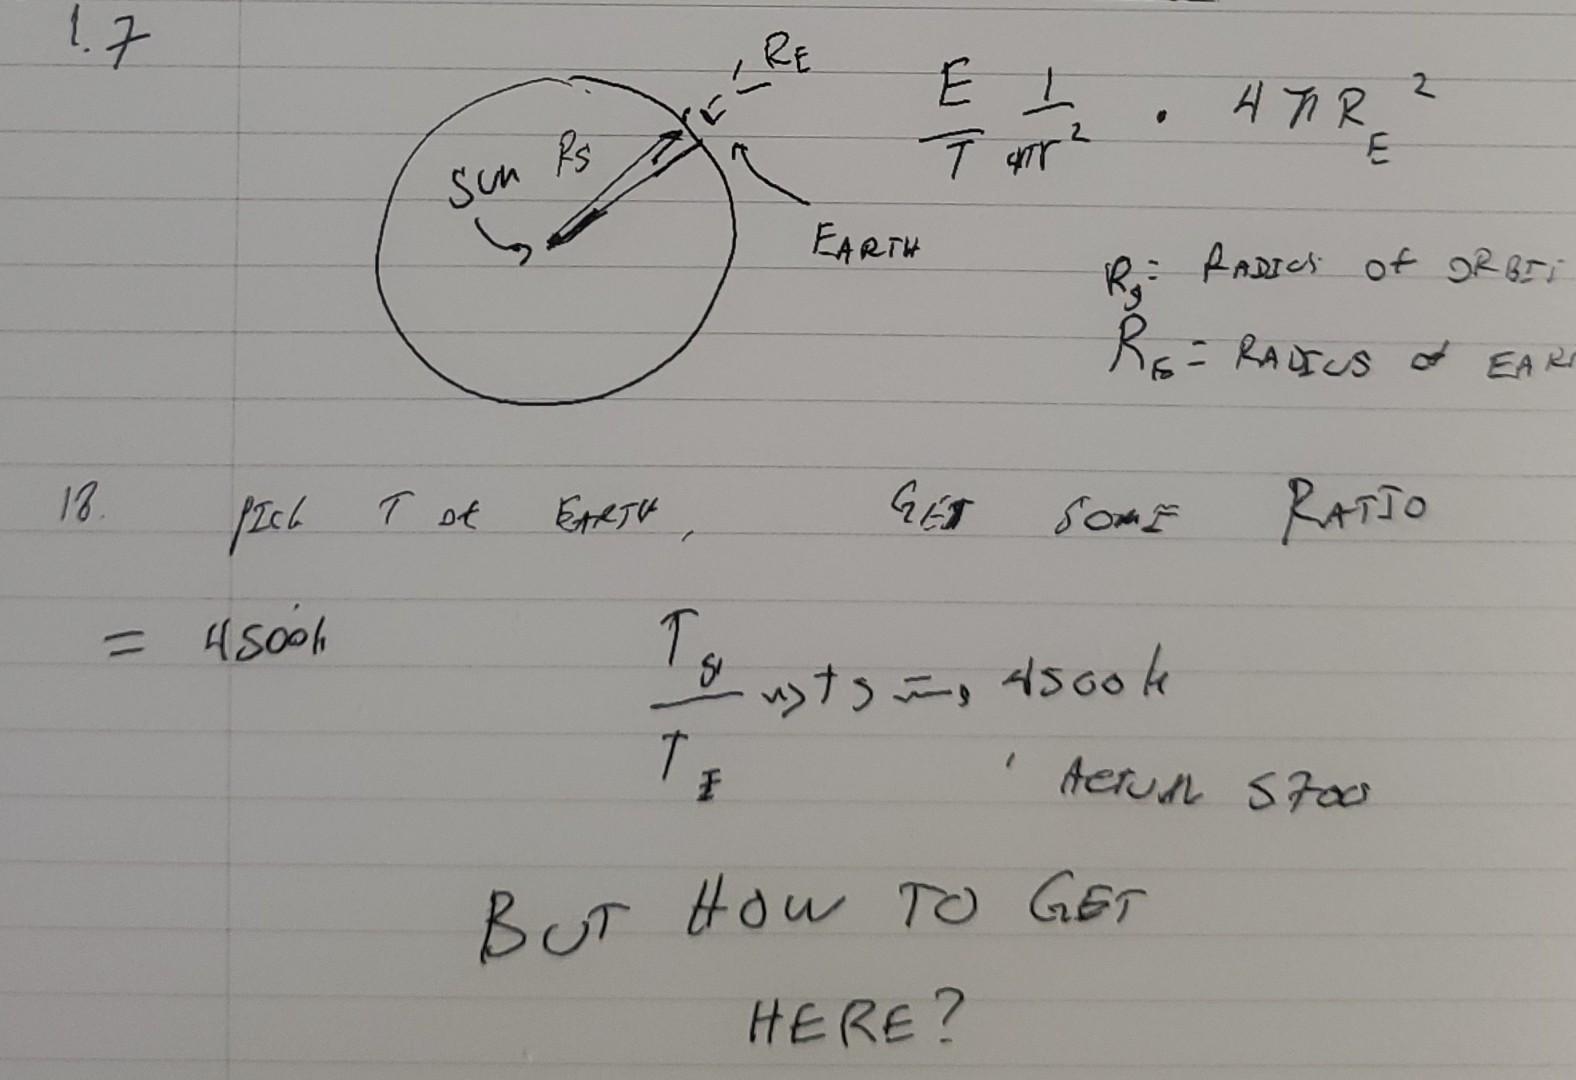 1.7
RE
E/T 1/4πr² · 4πRE²
Sun Rs
EARTH
Rs= RADIUS Of ORBIT
RE = RADIUS of EAR
18. PICK T of EARTH, GET SOME RATIO
= 4500k
Ts/TE 4500k
ACTUAL 5700
BUT HOW TO GET
HERE?